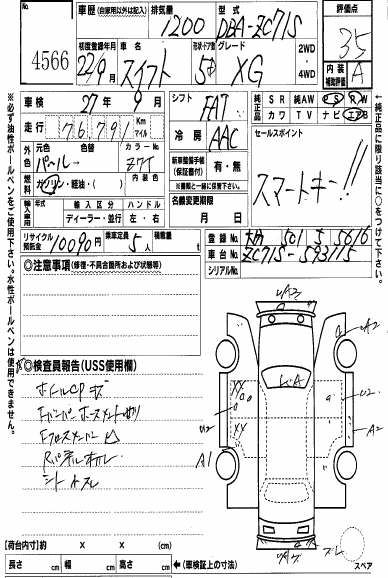 No.
4566
車歴
(自家用以外は記入)
排気量
1200
型式
DBA-ZC71S
評価点
3.5
初度登録年月
22年9月
車名
スイフト
形状・ドア数
5D
グレード
XG
2WD
4WD
内装補助評価
A
車検
27年9月
シフト
FAT
純正品
SR 純AW PS PW
革 TV ナビ エアB
走行
76791
Km
マイル
冷房
AAC
セールスポイント
スマートキー!!
外色
元色
色替
カラーNo.
パール→
Z7T
新車整備手帳
(保証書付)
有・無
※書類と一緒に保管下さい。
燃料
ガソリン・軽油・( )
内装色
名義変更期限
月 日
輸入車
年式
輸入区分
ハンドル
ディーラー・並行
左・右
リサイクル預託金
10090円
乗車定員
5人
積載量
t
登録No.
501
5616
車台No.
ZC71S-593715
シリアルNo.
◎注意事項
(修復・不具合箇所および状態等)
◎検査員報告(USS使用欄)
ホイルCPキズ
シートスレ
UA2
A2
UA
XX
U2
XX
A2
U2
A1
スペア
【荷台内寸】約 × × (cm)
長さ cm 幅 cm 高さ cm ←(車検証上の寸法)
※必ず油性ボールペンをご使用下さい。水性ボールペンは使用できません。
←純正品に限り該当に○をつけて下さい。